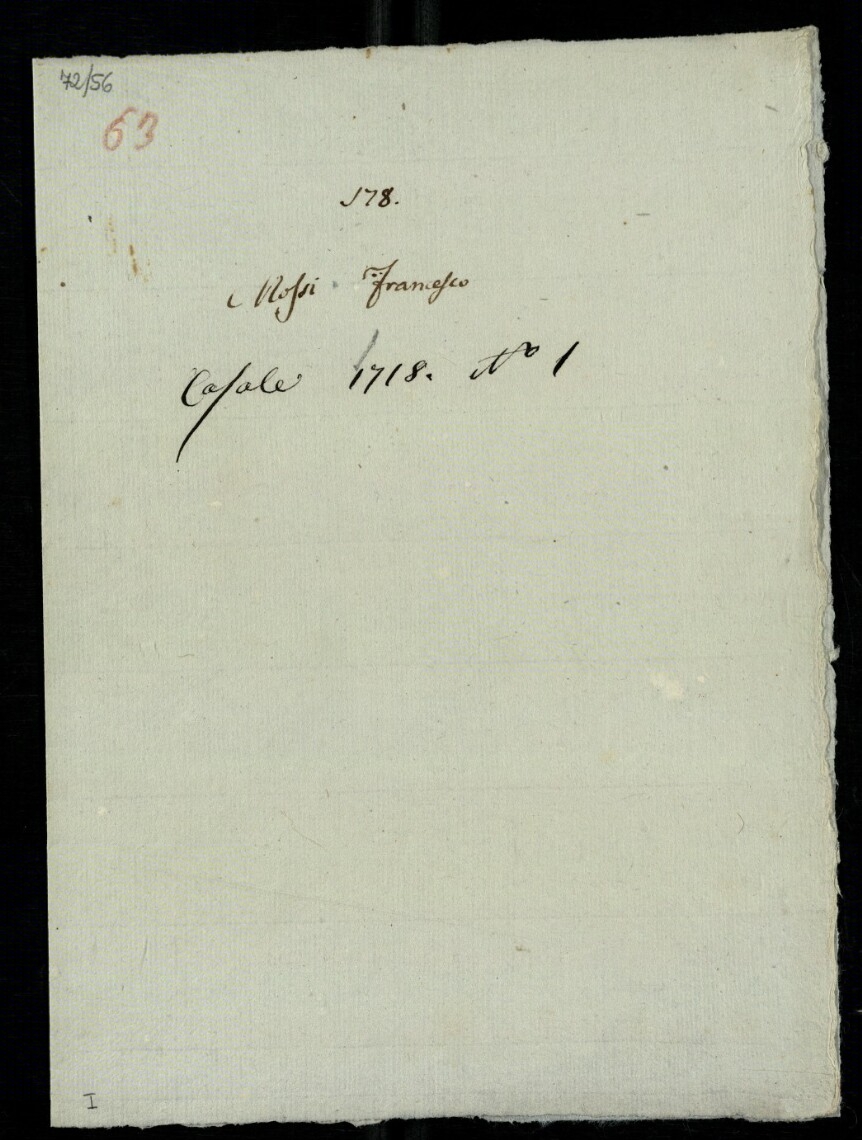 72/56
63
178.
Rossi Francesco
Casale 1718. No 1
I